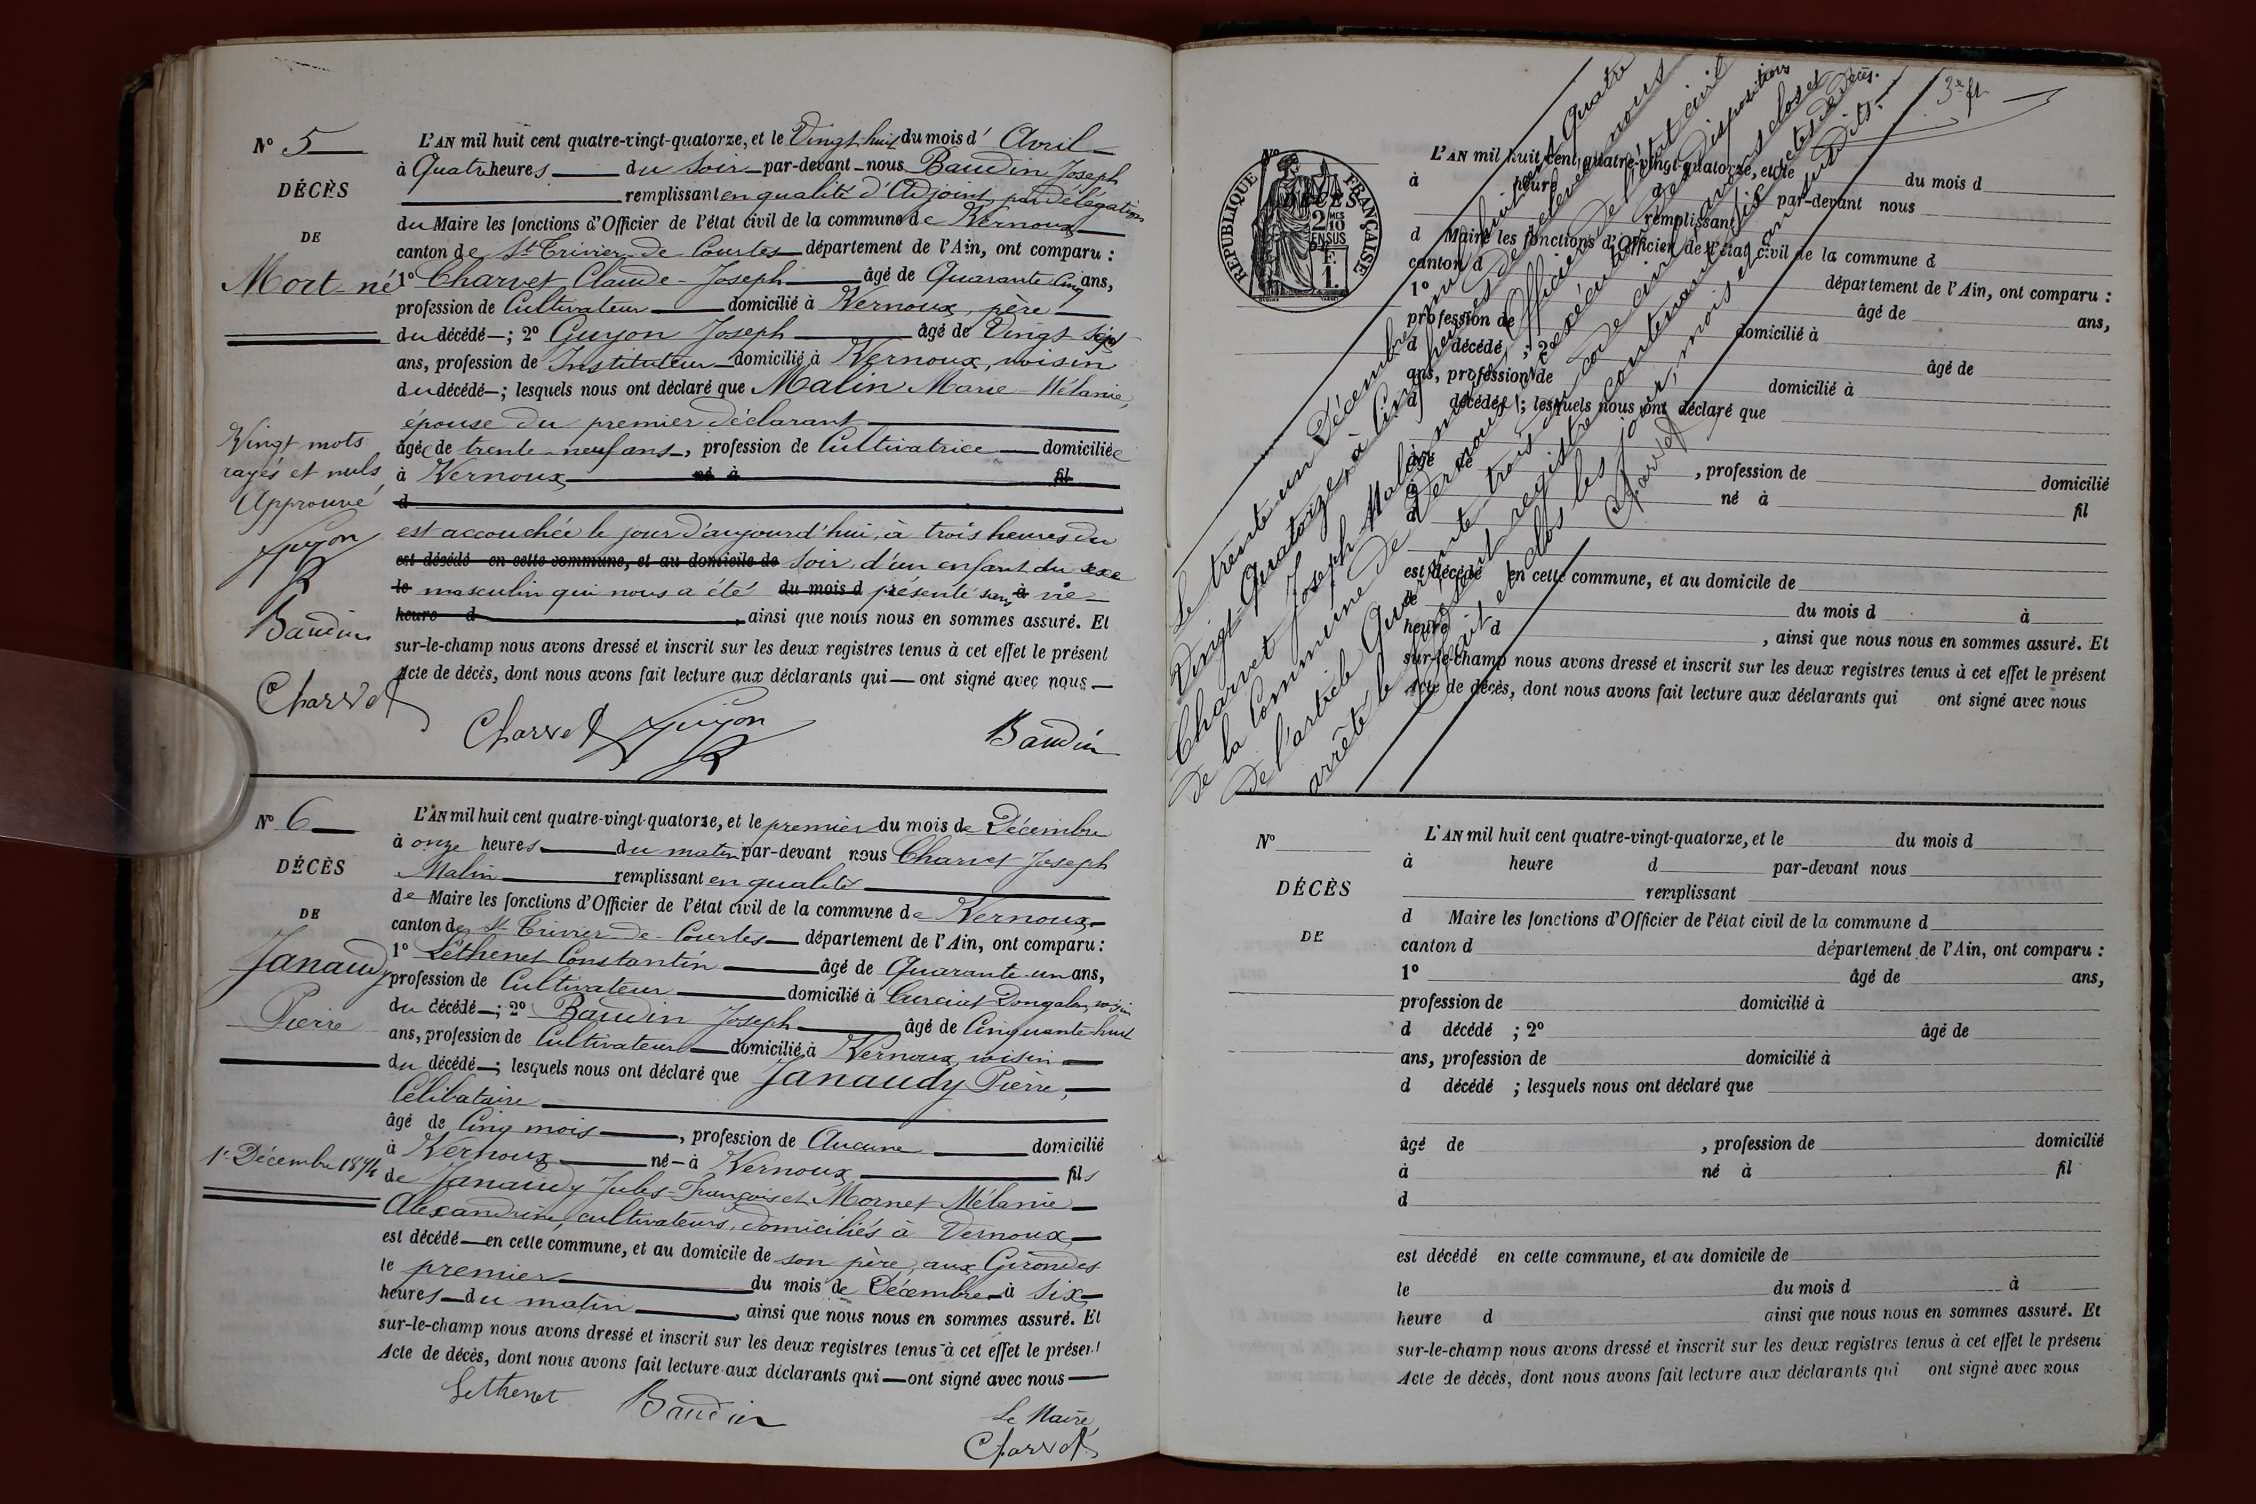 N° 5
DÉCÈS
DE
Mort-né
Vingt mots
rayés et nuls
Approuvé
Guyon
Baudin
Charvet
L'AN mil huit cent quatre-vingt-quatorze, et le Vingt huit du mois d' Avril
à Quatre heures du Soir par-devant nous Baudin Joseph
remplissant en qualité d'Adjoint par délégation
du Maire les fonctions d'Officier de l'état civil de la commune de Vernoux
canton de St Trivier-de-Courtes département de l'Ain, ont comparu :
1° Charvet Claude-Joseph âgé de Quarante cinq ans,
profession de Cultivateur domicilié à Vernoux, père
du décédé ; 2° Guyon Joseph âgé de Vingt sept
ans, profession de Instituteur domicilié à Vernoux, voisin
du décédé ; lesquels nous ont déclaré que Malin Marie Mélanie,
épouse du premier déclarant
âgée de trente-neuf ans, profession de Cultivatrice domiciliée
à Vernoux né à fil
d
est accouchée le jour d'aujourd'hui, à trois heures du
est décédé en cette commune, et au domicile de soir d'un enfant du sexe
le masculin qui nous a été du mois d présenté sans à vie
heure d , ainsi que nous nous en sommes assuré. Et
sur-le-champ nous avons dressé et inscrit sur les deux registres tenus à cet effet le présent
Acte de décès, dont nous avons fait lecture aux déclarants qui ont signé avec nous
Charvet Guyon Baudin
N° 6
DÉCÈS
DE
Janaudy
Pierre
1er Décembre 1894
L'AN mil huit cent quatre-vingt-quatorze, et le premier du mois de Décembre
à onze heures du matin par-devant nous Charvet Joseph
Malin remplissant en qualité
de Maire les fonctions d'Officier de l'état civil de la commune de Vernoux
canton de St Trivier-de-Courtes département de l'Ain, ont comparu :
1° Léthenet Constantin âgé de Quarante-un ans,
profession de Cultivateur domicilié à Curciat Dongalon, voisin
du décédé ; 2° Baudin Joseph âgé de Cinquante-huit
ans, profession de Cultivateur domicilié à Vernoux, voisin
du décédé ; lesquels nous ont déclaré que Janaudy Pierre,
Célibataire
âgé de Cinq mois, profession de Aucune domicilié
à Vernoux né à Vernoux fils
de Janaudy Jules-François et Mornet Mélanie
Alexandrine, cultivateurs, domiciliés à Vernoux
est décédé en cette commune, et au domicile de son père, aux Girondes
le premier du mois de Décembre à six
heures du matin, ainsi que nous nous en sommes assuré. Et
sur-le-champ nous avons dressé et inscrit sur les deux registres tenus à cet effet le présent
Acte de décès, dont nous avons fait lecture aux déclarants qui ont signé avec nous
Lethenet Baudin Le Maire,
Charvet
3e ft
Le trente un Décembre mil huit cent Quatre
Vingt-Quatorze, à cinq heures de relevée nous
Charvet Joseph Malin maire, Officier de l'état civil
de la Commune de Vernoux en exécution des dispositions
de l'article Quarante trois du code civil avons clos et
arrêté le présent registre contenant six actes de décès.
Fait et clos les jour, mois et an susdits.
Charvet
RÉPUBLIQUE FRANÇAISE
2 MES 10 EN SUS
1 F.
N°
DÉCÈS
L'AN mil huit cent quatre-vingt-quatorze, et le du mois d
à heure d par-devant nous
remplissant
d Maire les fonctions d'Officier de l'état civil de la commune d
canton d département de l'Ain, ont comparu :
1° âgé de ans,
profession de domicilié à
d décédé ; 2° âgé de
ans, profession de domicilié à
d décédé ; lesquels nous ont déclaré que
âgé de , profession de domicilié
à né à fil
d
est décédé en cette commune, et au domicile de
le du mois d à
heure d , ainsi que nous nous en sommes assuré. Et
sur-le-champ nous avons dressé et inscrit sur les deux registres tenus à cet effet le présent
Acte de décès, dont nous avons fait lecture aux déclarants qui ont signé avec nous
N°
DÉCÈS
DE
L'AN mil huit cent quatre-vingt-quatorze, et le du mois d
à heure d par-devant nous
remplissant
d Maire les fonctions d'Officier de l'état civil de la commune d
canton d département de l'Ain, ont comparu :
1° âgé de ans,
profession de domicilié à
d décédé ; 2° âgé de
ans, profession de domicilié à
d décédé ; lesquels nous ont déclaré que
âgé de , profession de domicilié
à né à fil
d
est décédé en cette commune, et au domicile de
le du mois d à
heure d ainsi que nous nous en sommes assuré. Et
sur-le-champ nous avons dressé et inscrit sur les deux registres tenus à cet effet le présent
Acte de décès, dont nous avons fait lecture aux déclarants qui ont signé avec nous